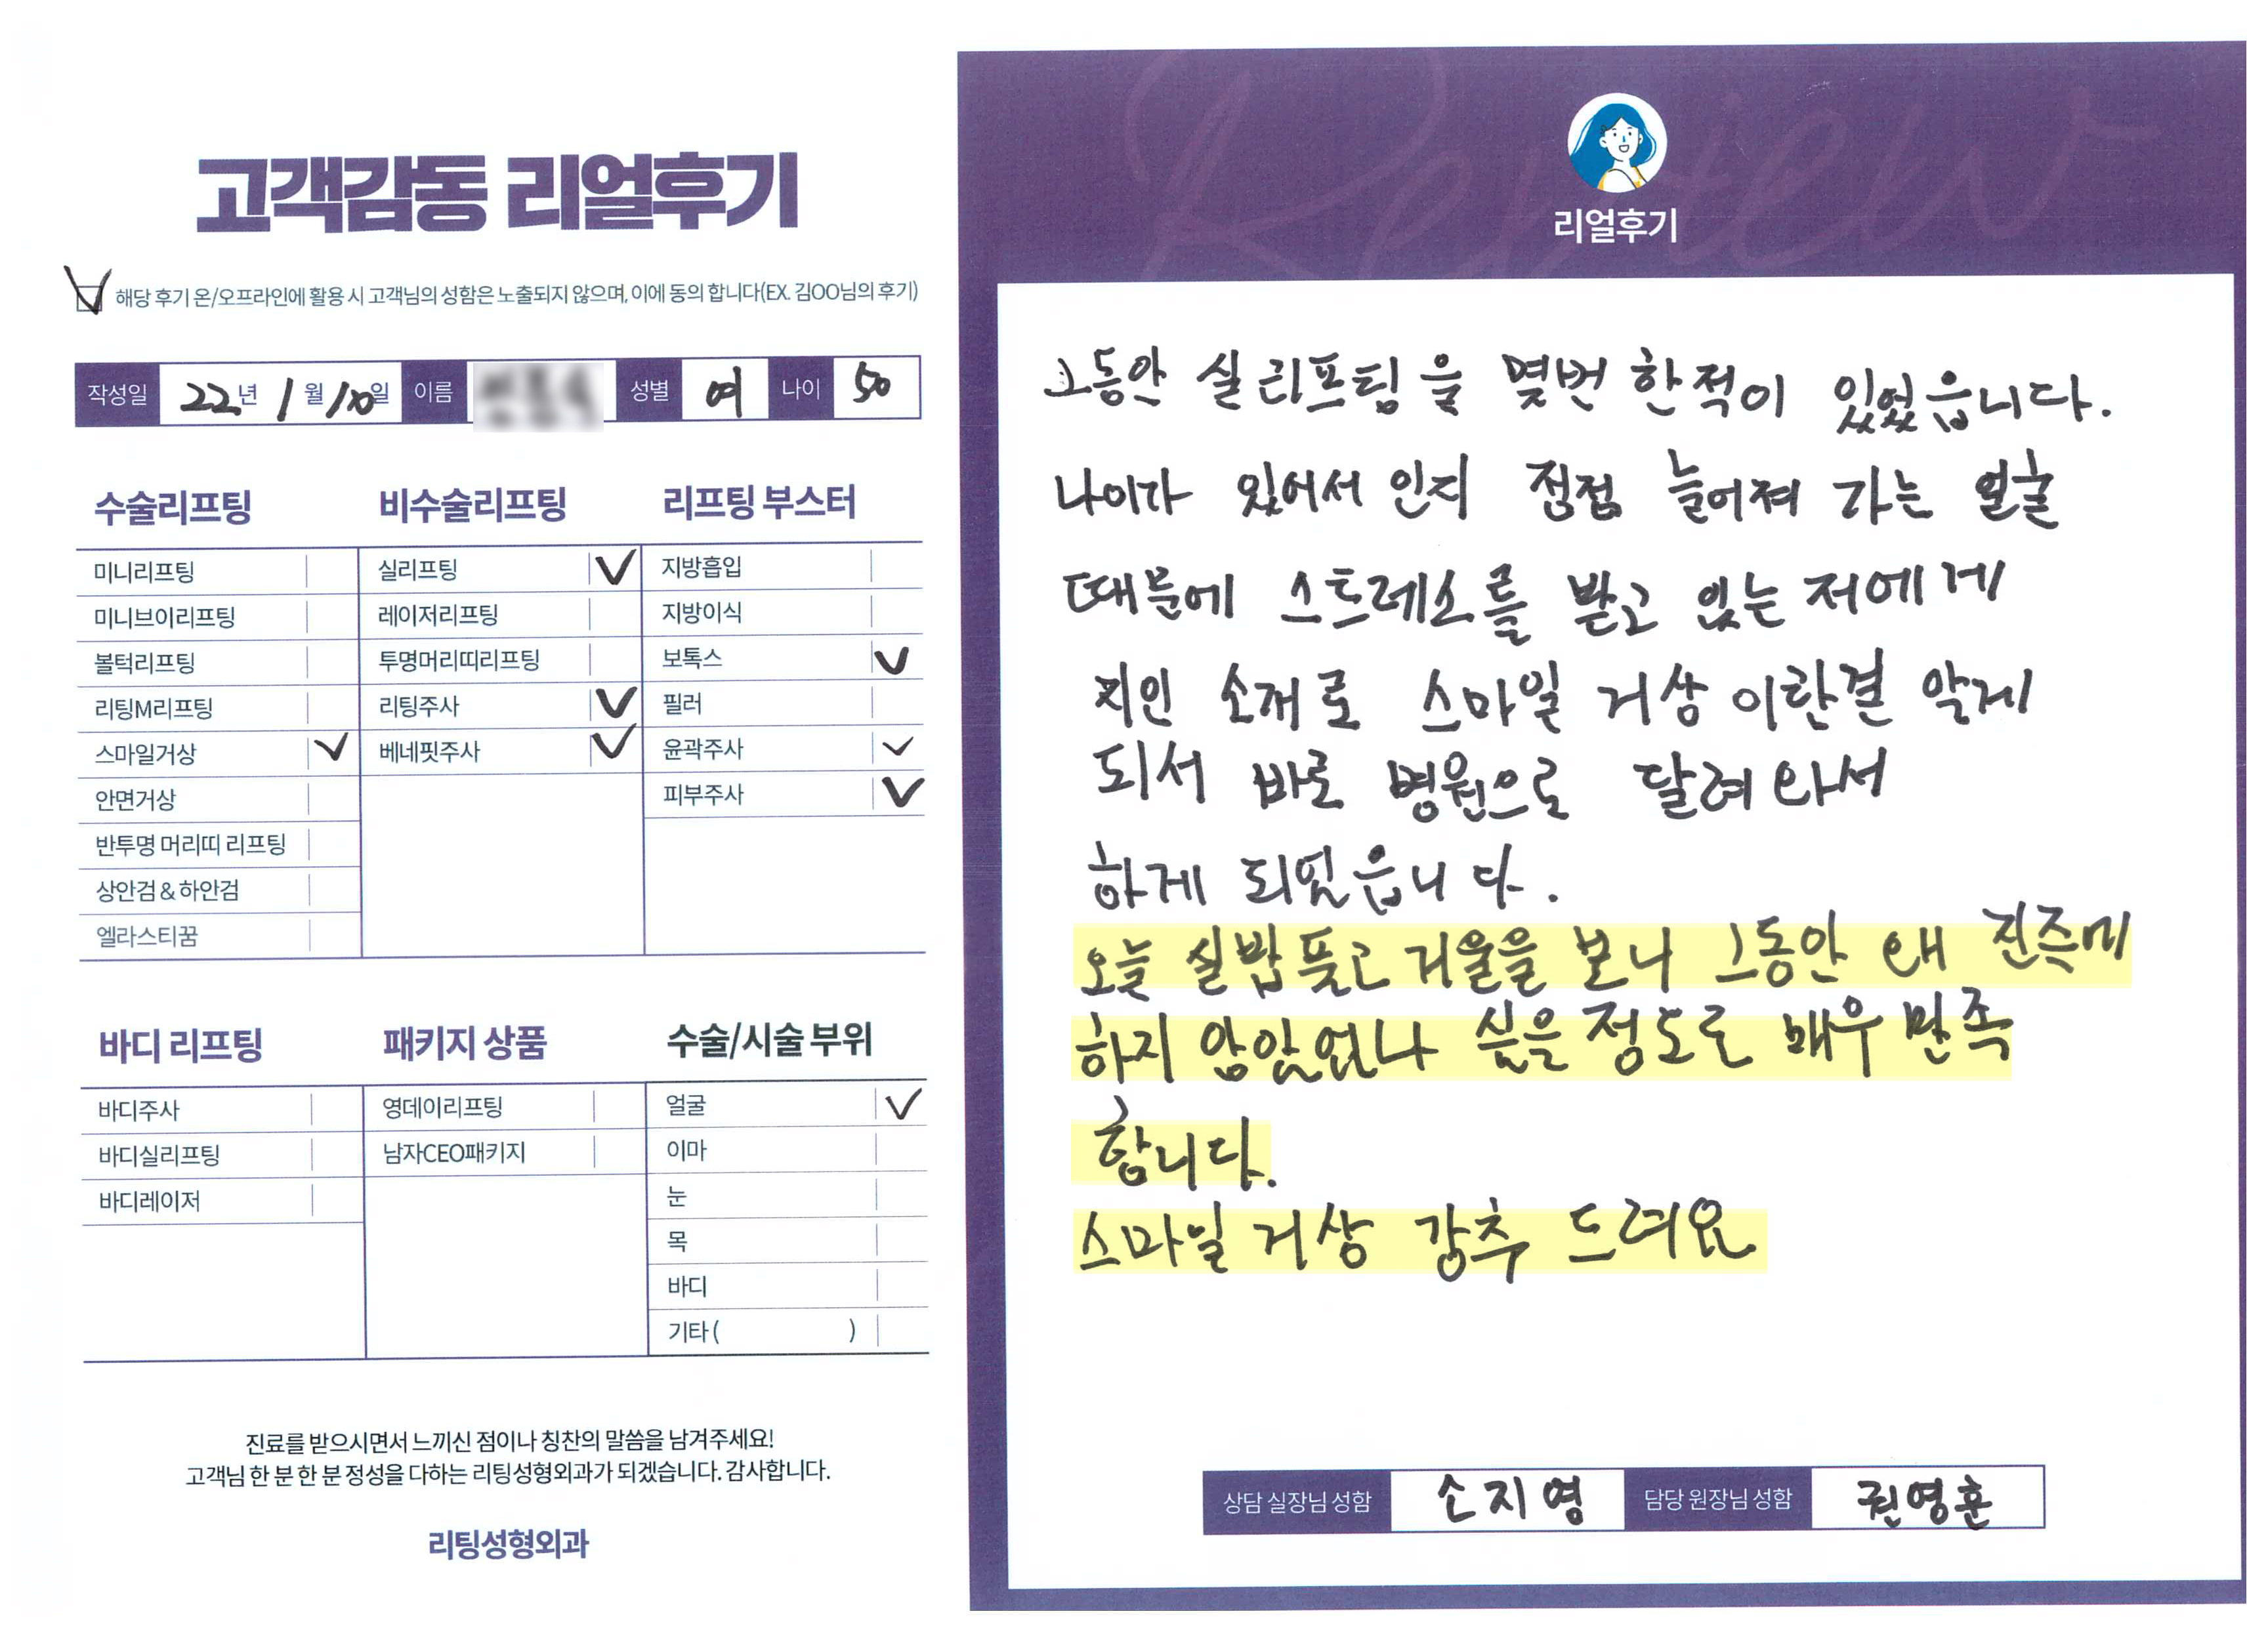 고객감동 리얼후기
해당 후기 온/오프라인에 활용 시 고객님의 성함은 노출되지 않으며, 이에 동의 합니다(EX. 김OO님의 후기)
작성일 22년 1월 10일 이름 성별 여 나이 50
수술리프팅 비수술리프팅 리프팅 부스터
미니리프팅 실리프팅 지방흡입
미니브이리프팅 레이저리프팅 지방이식
볼턱리프팅 투명머리띠리프팅 보톡스
리팅M리프팅 리팅주사 필러
스마일거상 베네핏주사 윤곽주사
안면거상 피부주사
반투명 머리띠 리프팅
상안검 & 하안검
엘라스티꿈
바디 리프팅 패키지 상품 수술/시술 부위
바디주사 영데이리프팅 얼굴
바디실리프팅 남자CEO패키지 이마
바디레이저 눈
목
바디
기타 ( )
진료를 받으시면서 느끼신 점이나 칭찬의 말씀을 남겨주세요!
고객님 한 분 한 분 정성을 다하는 리팅성형외과가 되겠습니다. 감사합니다.
리팅성형외과
Review
리얼후기
그동안 실 리프팅을 몇번 한적이 있었읍니다.
나이가 있어서 인지 점점 늘어져 가는 얼굴
때문에 스트레스를 받고 있는 저에게
지인 소개로 스마일 거상 이란걸 알게
되서 바로 병원으로 달려 와서
하게 되었읍니다.
오늘 실밥풀고 거울을 보니 그동안 왜 진즉에
하지 않았었나 싶을 정도로 매우 만족
합니다.
스마일 거상 강추 드려요
상담 실장님 성함 손지영 담당 원장님 성함 권영훈